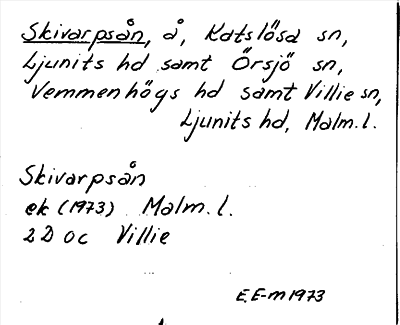 Skivarpsån, å, Katslösa sn,
Ljunits hd samt Örsjö sn,
Vemmenhögs hd samt Villie sn,
Ljunits hd, Malm. l.
Skivarpsån
ek (1973) Malm. l.
2D oc Villie
E.E-m 1973